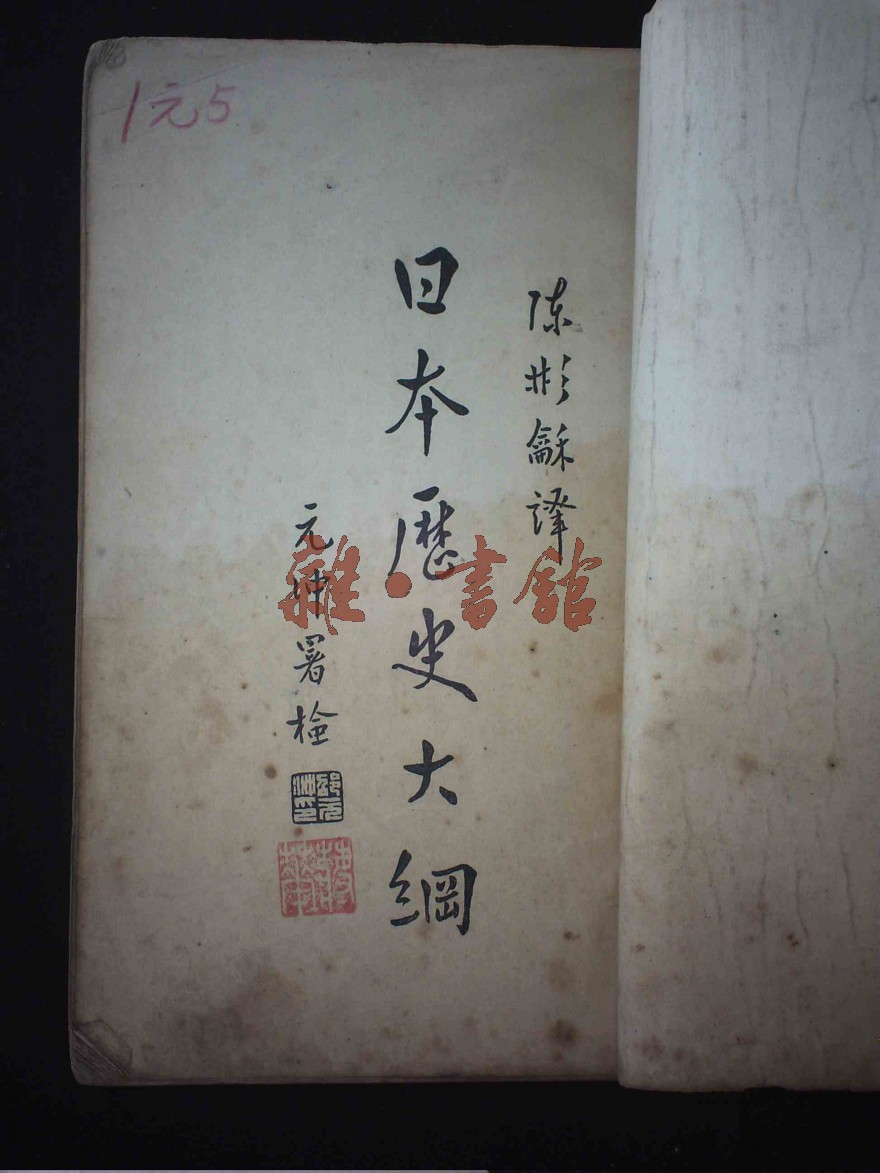 1元5
陈彬龢译
日本歷史大綱
元冲署检
雜·書館